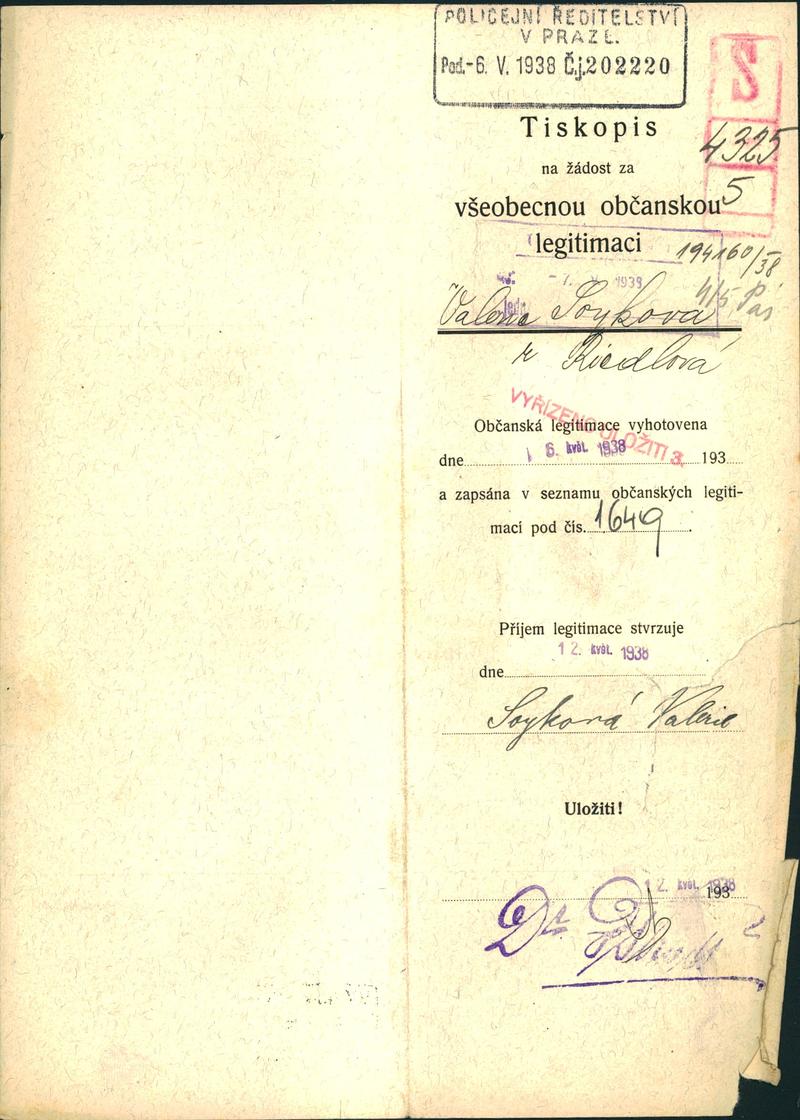 POLICEJNÍ ŘEDITELSTVÍ
V PRAZE.
Pod.-6. V. 1938 Č.j.202220
S
4325
5
Tiskopis
na žádost za
všeobecnou občanskou
legitimaci
194160/38
-7. V. 1938
Valerie Soyková
r Riedlová
VYŘÍZENO ULOŽITI
Občanská legitimace vyhotovena
dne 6. květ. 1938 193
a zapsána v seznamu občanských legiti-
mací pod čís. 1649
Příjem legitimace stvrzuje
12. květ. 1938
dne
Soyková Valerie
Uložiti!
12. květ. 1938 193
Dr